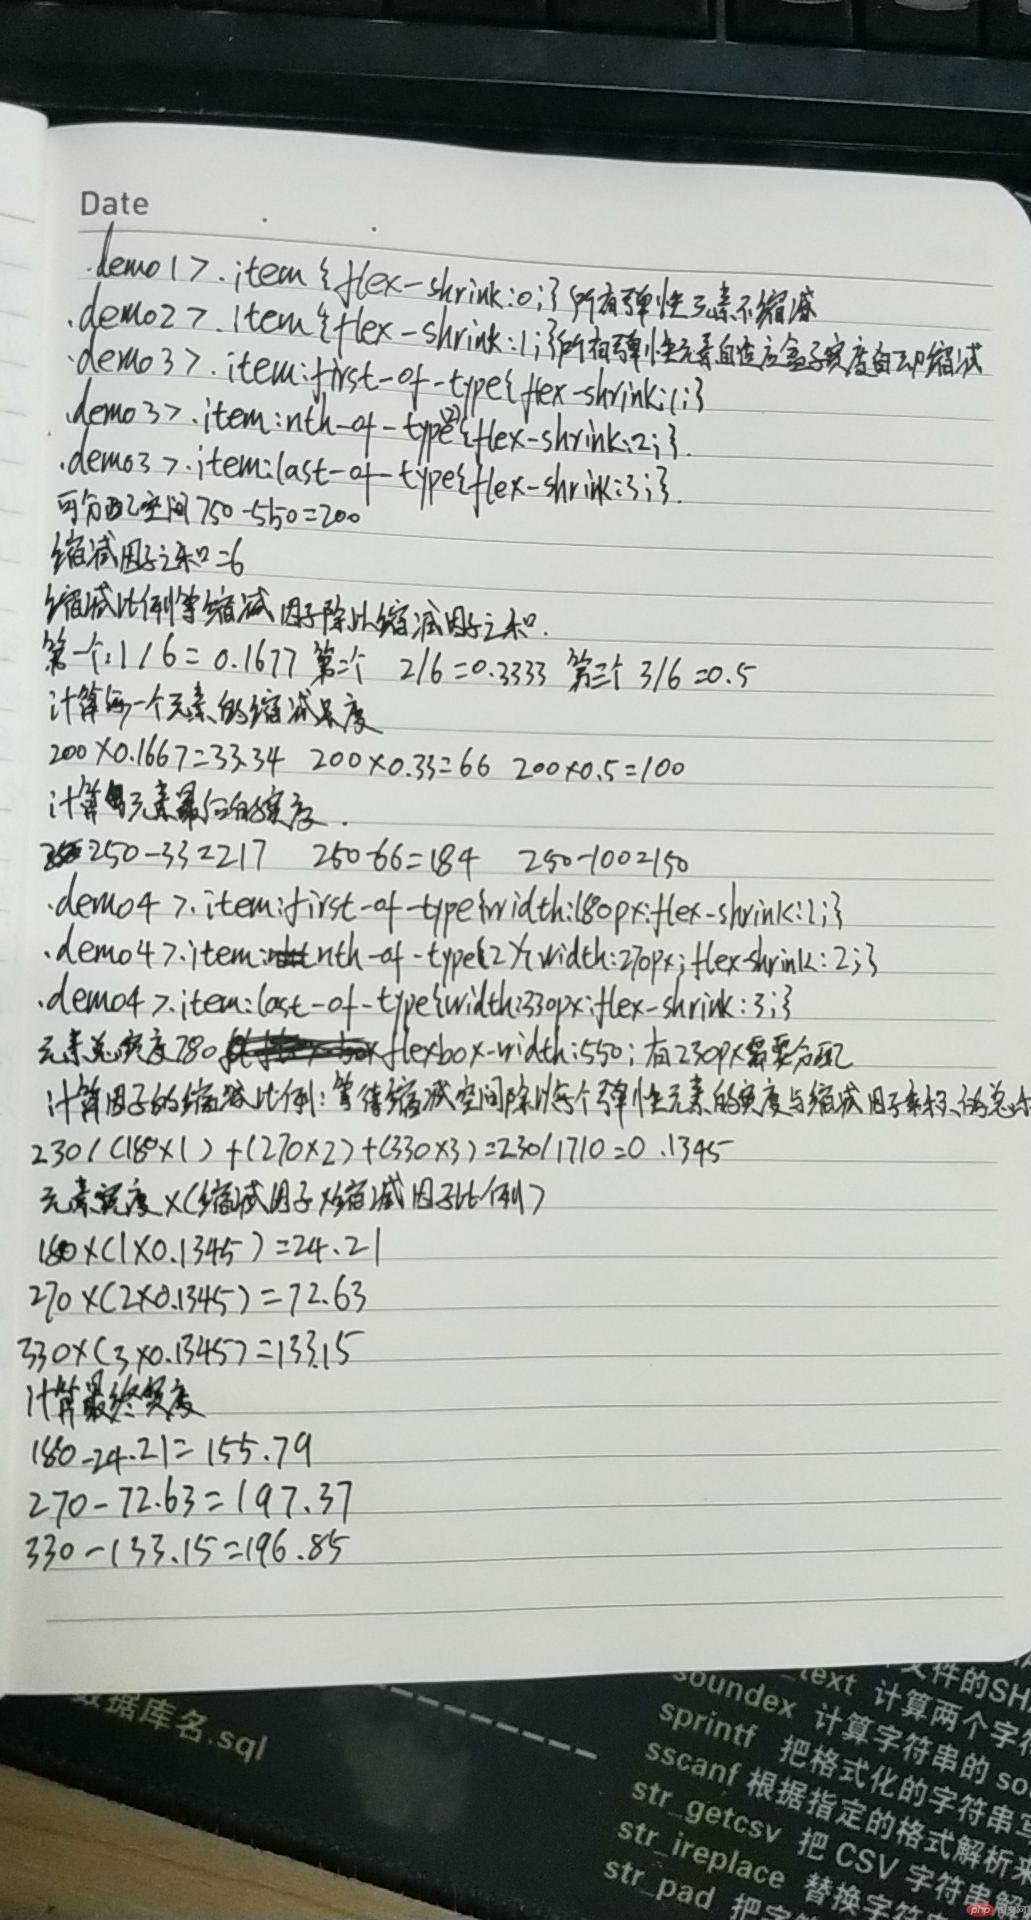 Date
.demo1>.item{flex-shrink:0;}所有弹性元素不缩减
.demo2>.item{flex-shrink:1;}所有弹性元素自适应盒子宽度自动缩减
.demo3>.item:first-of-type{flex-shrink:1;}
.demo3>.item:nth-of-type(2){flex-shrink:2;}.
.demo3>.item:last-of-type{flex-shrink:3;}.
可分配空间750-550=200
缩减因子之和=6
缩减比例等缩减因子除以缩减因子之和.
第一个:1/6=0.1677 第二个 2/6=0.3333 第三个 3/6=0.5
计算每一个元素的缩减宽度
200×0.1667=33.34 200×0.33=66 200×0.5=100
计算元素最后的宽度.
250-33=217 250-66=184 250-100=150
.demo4>.item:first-of-type{width:180px;flex-shrink:1;}
.demo4>.item:nth-of-type(2){width:270px;flex-shrink:2;}
.demo4>.item:last-of-type{width:330px;flex-shrink:3;}
元素总宽度780 flexbox-width:550;有230px需要分配
计算因子的缩减比例:等待缩减空间除以每个弹性元素的宽度与缩减因子乘积的总和
230/(180×1)+(270×2)+(330×3)=230/1710=0.1345
元素宽度×(缩减因子×缩减因子比例)
180×(1×0.1345)=24.21
270×(2×0.1345)=72.63
330×(3×0.1345)=133.15
计算最终宽度
180-24.21=155.79
270-72.63=197.37
330-133.15=196.85
数据库名.sql
文件的SHA
_text 计算两个字符
soundex 计算字符串的 sou
sprintf 把格式化的字符串写
sscanf 根据指定的格式解析来
str_getcsv 把 CSV 字符串解
str_ireplace 替换字符
str_pad 把字
php 中文网